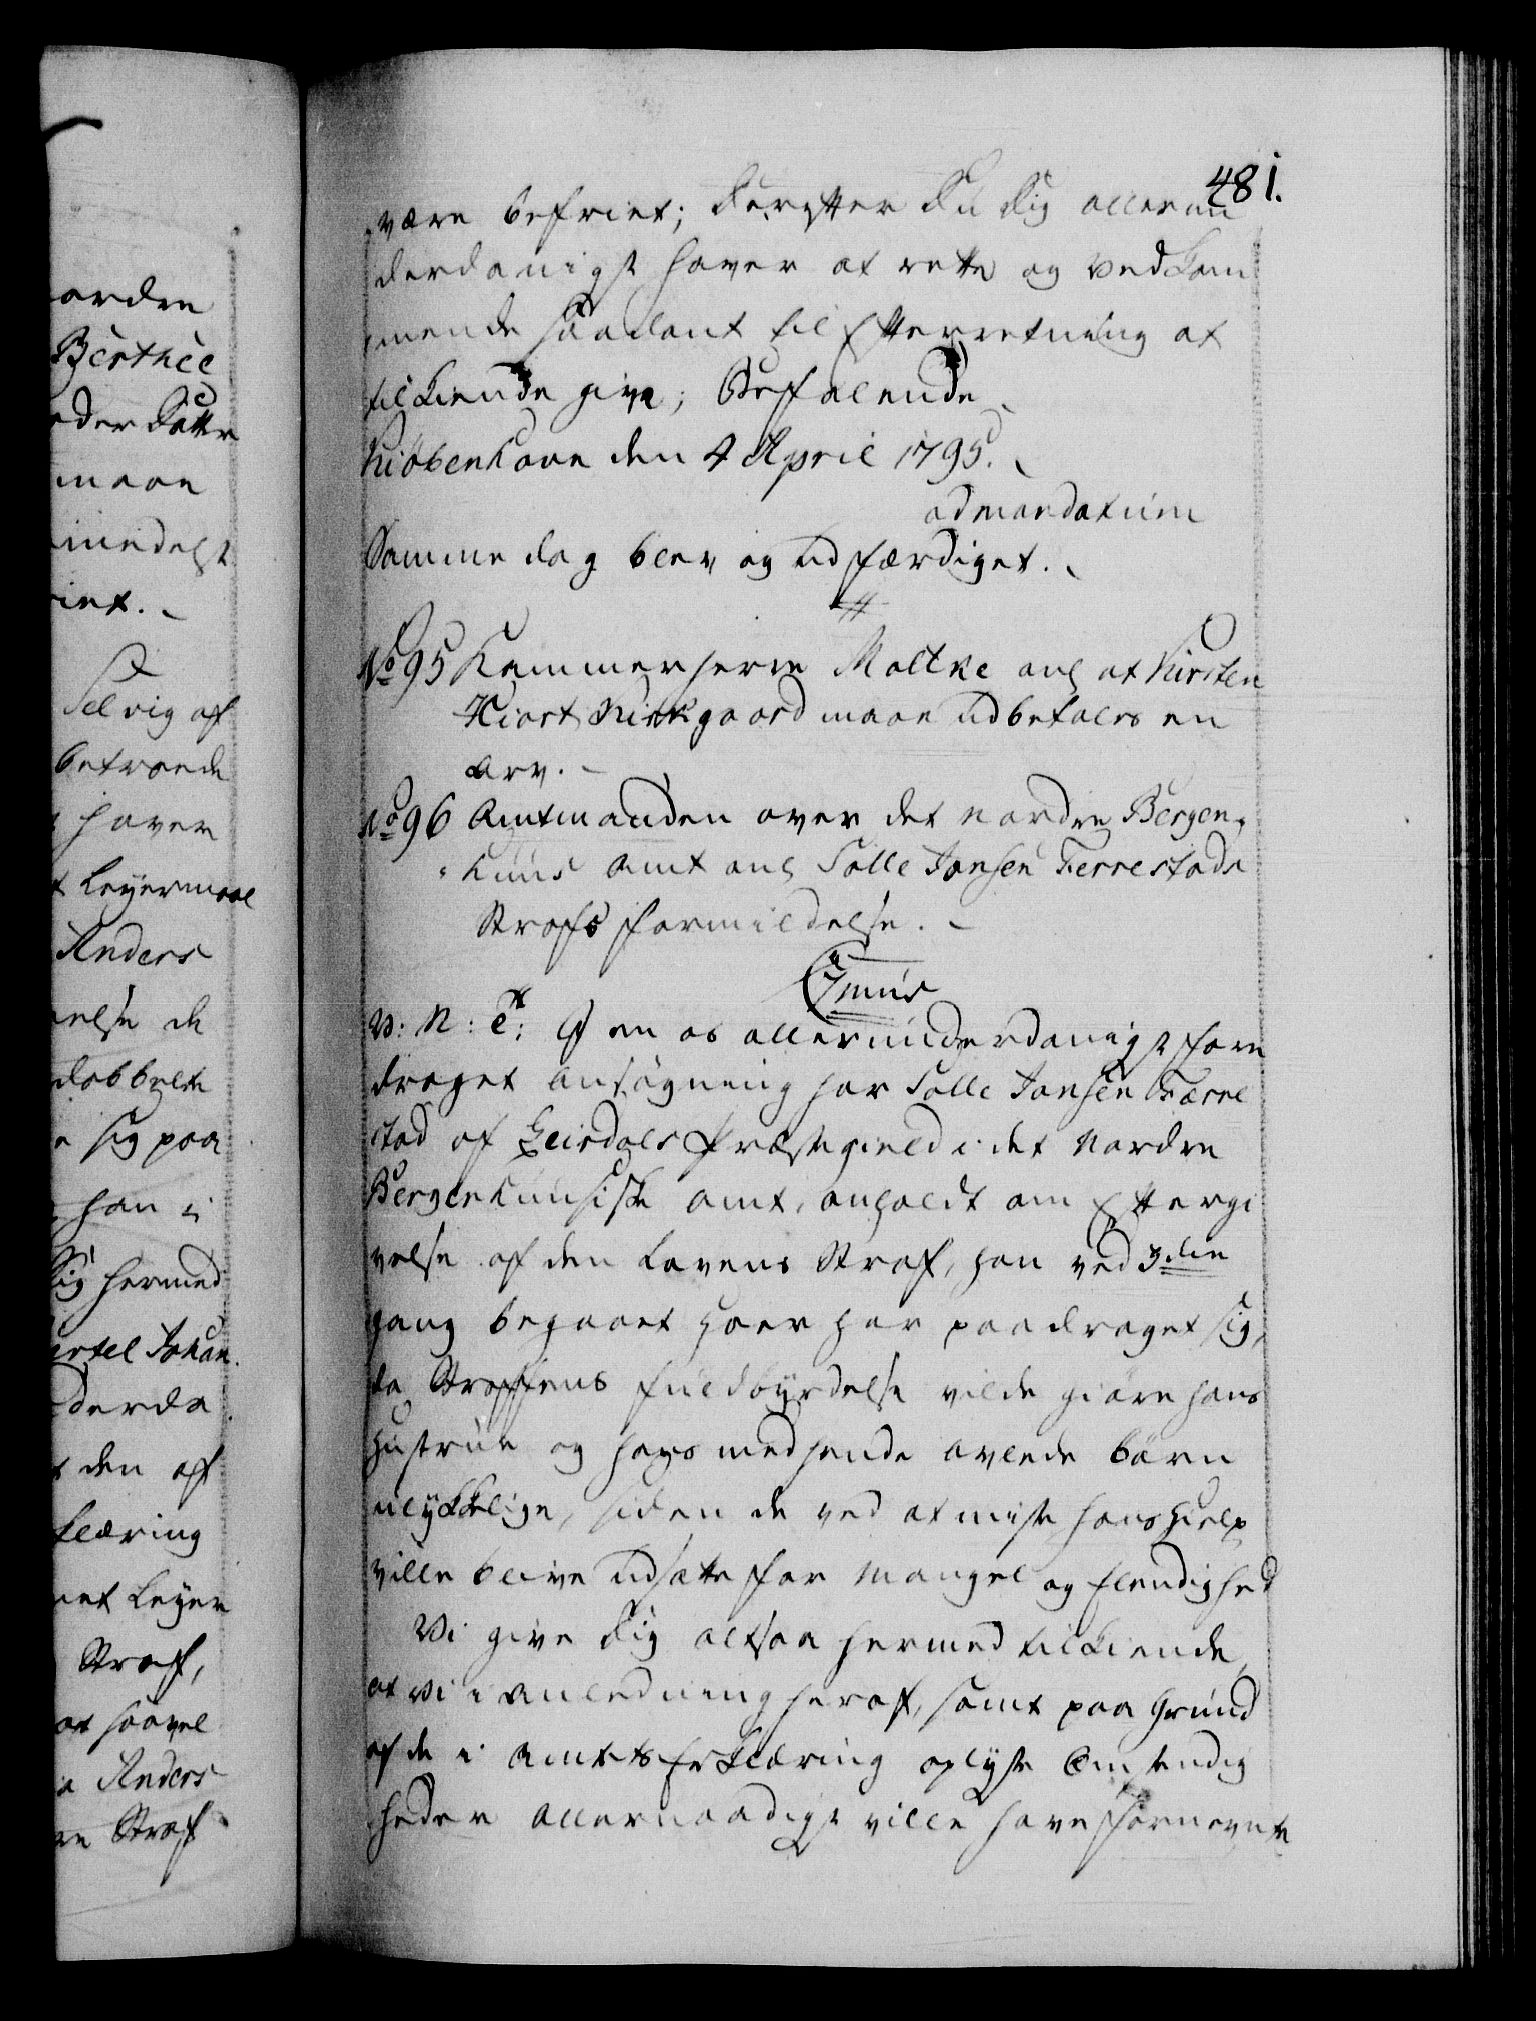 481.
være befriet; derefter du dig allerun
derdanigst haver at rette og vedkom
mende saadant til Efterretning at
tilkiende give; Befalende
Kiøbenhavn den 4 April 1795.
ad mandatum
Samme dag blev og udfærdiget.
No 95 Kammerherre Moltke ang at Kirsten
Hiort Kirkgaard maae udbetales en
Arv.
No 96 Amtmanden over det nordre Bergen,
huus Amt ang Salle Jansen Ferrestads
Strafs Formildelse.
Gr:
V: N: C: I en os allerunderdanigst fore
draget Ansøgning har Salle Jansen Færre
stad af Leirdals Præstegield i det Nordre
Bergenhuusiske Amt, anholdt om Eftergi
velse af den Lovens Straf, han ved 3die
gang begaaet Hoer har paadraget sig,
da Straffens Fuldbyrdelse vilde giøre hans
Hustrue og hans med hende avlede Børn
ulykkelige, siden de ved at miste hans Hielp
ville blive udsatte for Mangel og Elendighed
Vi give dig altsaa hermed tilkiende,
at vi i Anledning heraf, samt paa Grund
af de i Amtets Erklæring oplyste Omstændig
heder allernaadigst ville have fornævnte
ordre
Berthee
eder Datter
maae
imidelst
riet.
Selvig af
betroede
haver
t Leyermaal
Anders
velse de
dobbelte
e sig paa
han i
Sig hermed
ertel Johan
derda
t den af
klæring
net Leyer
Straf,
at saavel
a Anders
re Straf